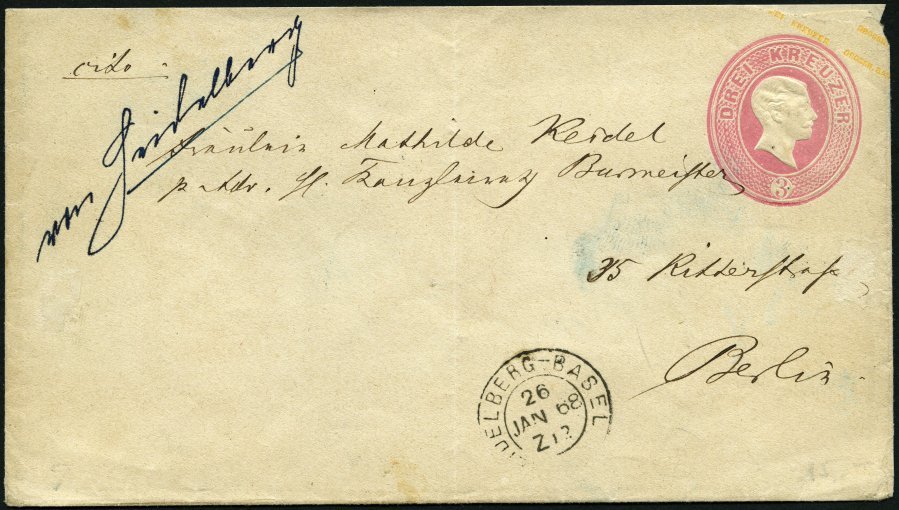 cito
von Heidelberg
DREI KREUZER
3
Fräulein Mathilde Keidel
p. Adr. H. Kanzleirat Burmeister
35 Ritterstraße
Berlin
HEIDELBERG-BASEL
26
JAN 68
Z12